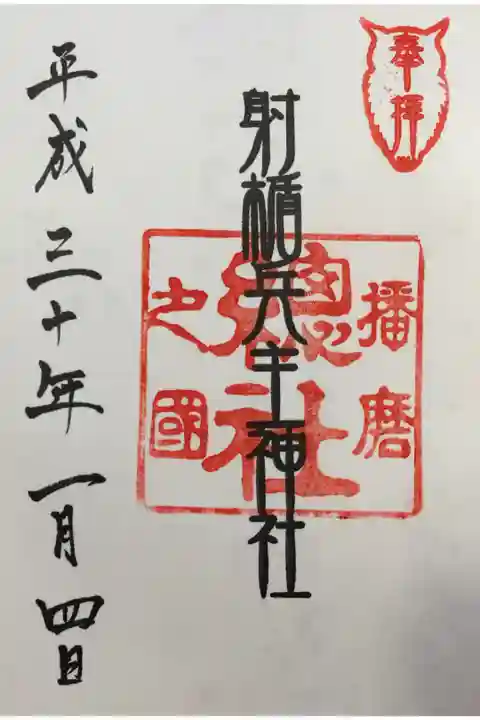 奉拝
播磨
總社
之國
射楯兵主神社
平成三十年一月四日